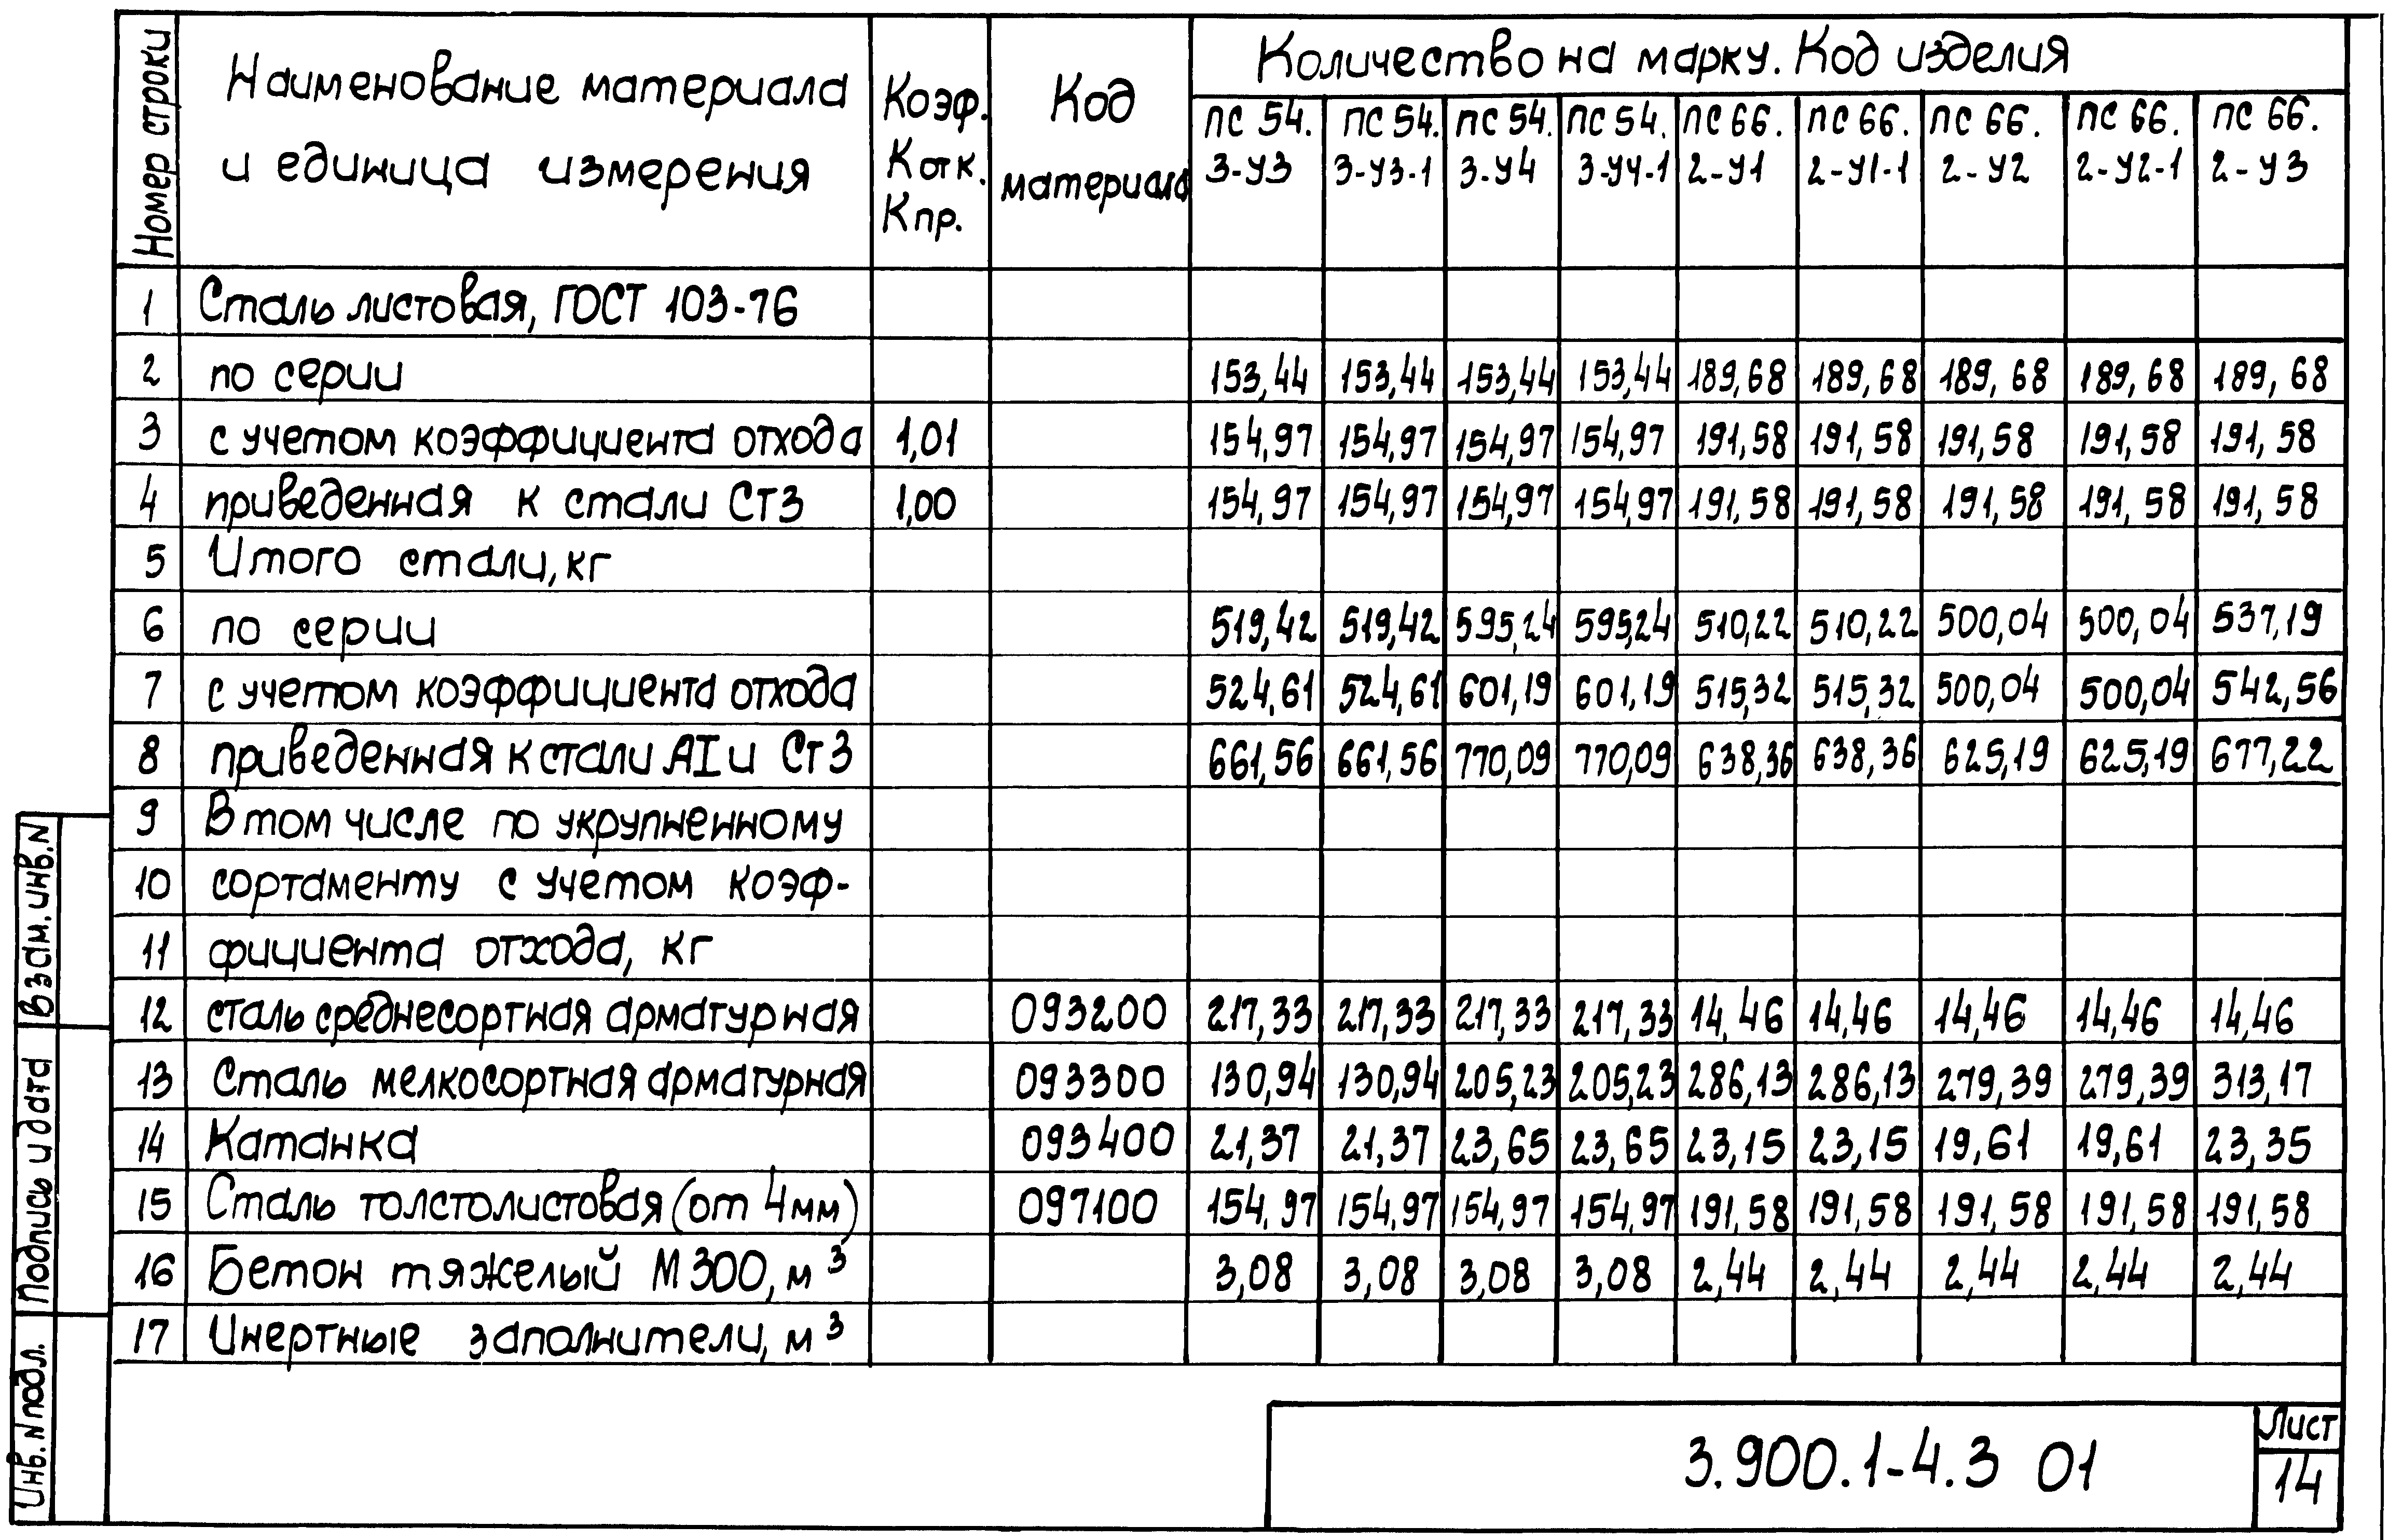 Номер строки | Наименование материала и единица измерения | Коэф. Котк. Кпр. | Код материала | Количество на марку. Код изделия
ПС 54. 3-У3 | ПС 54. 3-У3-1 | ПС 54. 3-У4 | ПС 54. 3-У4-1 | ПС 66. 2-У1 | ПС 66. 2-У1-1 | ПС 66. 2-У2 | ПС 66. 2-У2-1 | ПС 66. 2-У3
1 Сталь листовая, ГОСТ 103-76
2 по серии 153,44 153,44 153,44 153,44 189,68 189,68 189,68 189,68 189,68
3 с учетом коэффициента отхода 1,01 154,97 154,97 154,97 154,97 191,58 191,58 191,58 191,58 191,58
4 приведенная к стали Ст3 1,00 154,97 154,97 154,97 154,97 191,58 191,58 191,58 191,58 191,58
5 Итого стали, кг
6 по серии 519,42 519,42 595,24 595,24 510,22 510,22 500,04 500,04 537,19
7 с учетом коэффициента отхода 524,61 524,61 601,19 601,19 515,32 515,32 500,04 500,04 542,56
8 приведенная к стали АI и Ст3 661,56 661,56 770,09 770,09 638,36 638,36 625,19 625,19 677,22
9 В том числе по укрупненному
10 сортаменту с учетом коэф-
11 фициента отхода, кг
12 сталь среднесортная арматурная 093200 217,33 217,33 217,33 217,33 14,46 14,46 14,46 14,46 14,46
13 Сталь мелкосортная арматурная 093300 130,94 130,94 205,23 205,23 286,13 286,13 279,39 279,39 313,17
14 Катанка 093400 21,37 21,37 23,65 23,65 23,15 23,15 19,61 19,61 23,35
15 Сталь толстолистовая (от 4мм) 097100 154,97 154,97 154,97 154,97 191,58 191,58 191,58 191,58 191,58
16 Бетон тяжелый М300, м³ 3,08 3,08 3,08 3,08 2,44 2,44 2,44 2,44 2,44
17 Инертные заполнители, м³
Взам. инв. N
Подпись и дата
Инв. N подл.
3.900.1-4.3 01
Лист
14